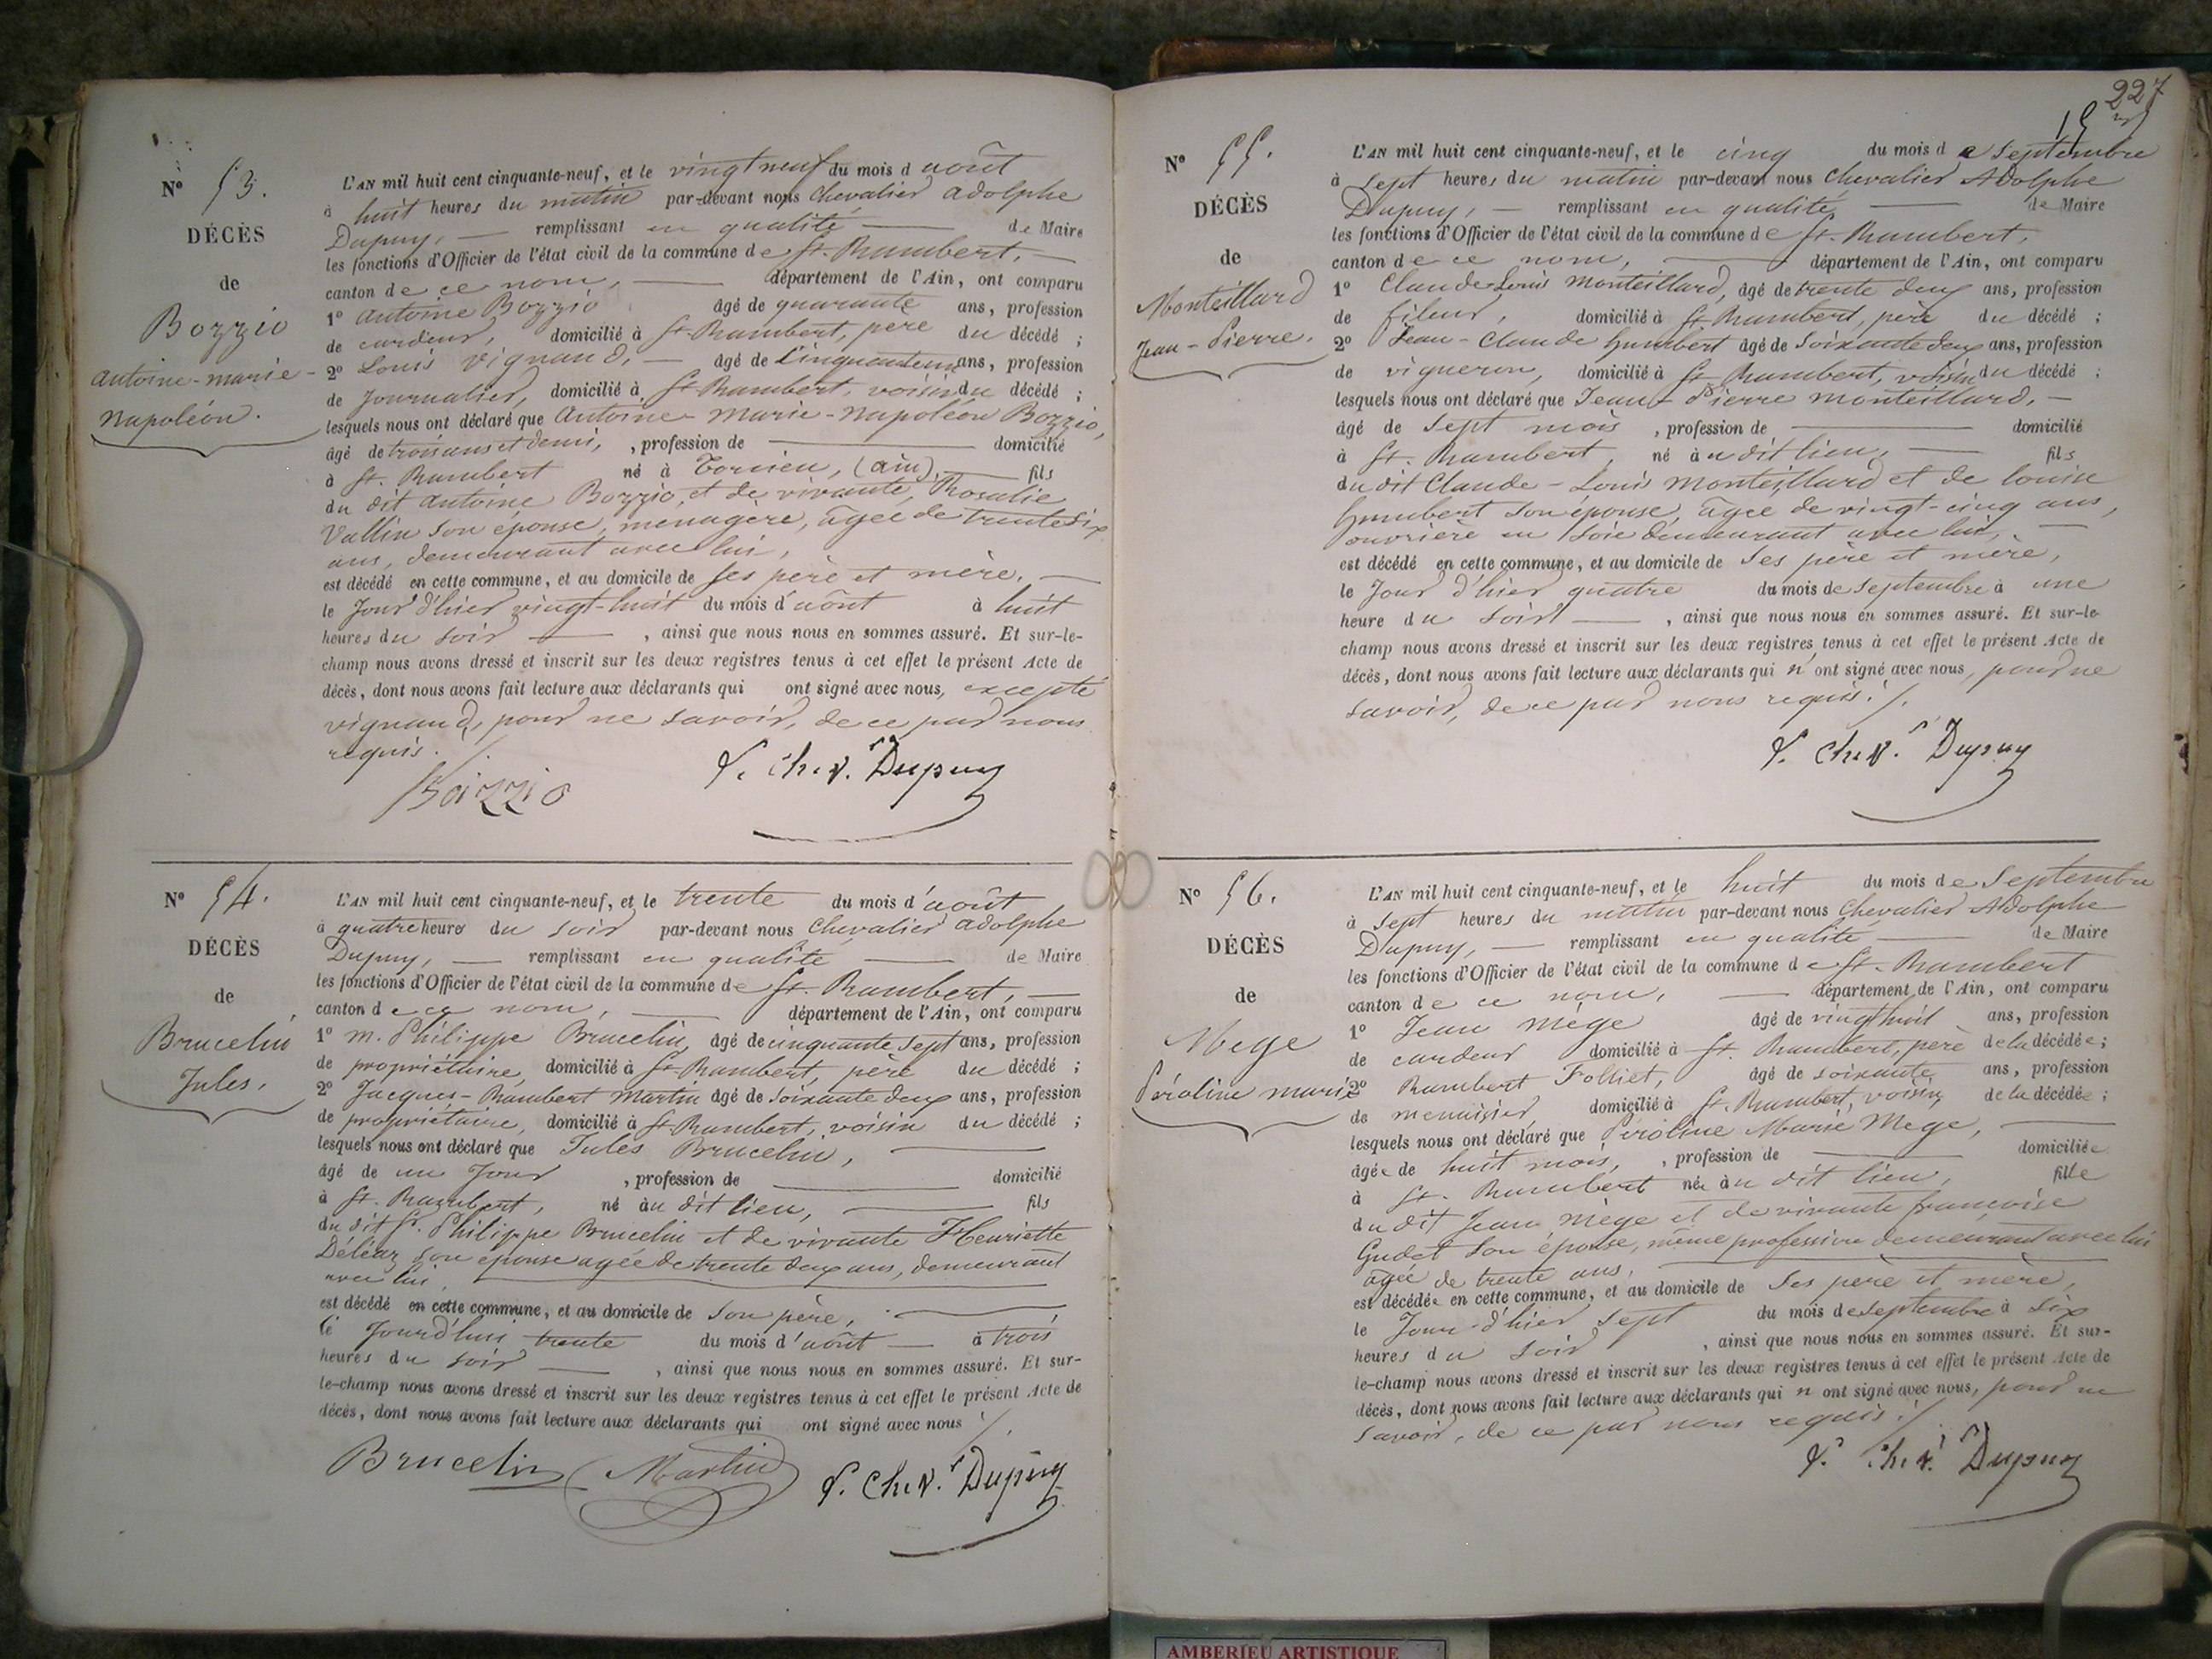 N° 53.
DÉCÈS
de
Bozzio
antoine-marie-
napoléon.
L'AN mil huit cent cinquante-neuf, et le vingt neuf du mois d août
à huit heures du matin par-devant nous Chevalier adolphe
Dupuy, — remplissant en qualité — de Maire
les fonctions d'Officier de l'état civil de la commune de St. Rambert, —
canton de ce nom, — département de l'Ain, ont comparu
1° antoine Bozzio âgé de quarante ans, profession
de cardeur, domicilié à St Rambert, père du décédé ;
2° Louis vignand, — âgé de Cinquante ans, profession
de Journalier, domicilié à St Rambert, voisin du décédé ;
lesquels nous ont déclaré que Antoine-Marie-Napoléon Bozzio,
âgé de trois ans et demi, , profession de — domicilié
à St. Rambert né à Torcieu, (ain), — fils
du dit antoine Bozzio, et de vivante, Rosalie
Vallin son épouse, ménagère, âgée de trente six
ans, demeurant avec lui,
est décédé en cette commune, et au domicile de ses père et mère, —
le Jour d'hier vingt-huit du mois d'août à huit
heures du soir — , ainsi que nous nous en sommes assuré. Et sur-le-
champ nous avons dressé et inscrit sur les deux registres tenus à cet effet le présent Acte de
décès, dont nous avons fait lecture aux déclarants qui ont signé avec nous, excepté
vignand, pour ne savoir, de ce par nous
requis. /
Boizzio P. Chev.r Dupuy
N° 54.
DÉCÈS
de
Brucelin
Jules,
L'AN mil huit cent cinquante-neuf, et le trente du mois d'août
à quatre heures du soir par-devant nous Chevalier adolphe
Dupuy, — remplissant en qualité — de Maire
les fonctions d'Officier de l'état civil de la commune de St. Rambert, —
canton de ce nom, — département de l'Ain, ont comparu
1° m. Philippe Brucelin, âgé de cinquante sept ans, profession
de propriétaire, domicilié à St Rambert, père du décédé ;
2° Jacques-Rambert Martin âgé de soixante deux ans, profession
de propriétaire, domicilié à St Rambert, voisin du décédé ;
lesquels nous ont déclaré que Jules Brucelin, —
âgé de un Jour , profession de — domicilié
à St. Rambert, né au dit lieu, — fils
du dit Sr. Philippe Brucelin et de vivante Henriette
son épouse agée de trente deux ans, demeurant
avec lui, —
est décédé en cette commune, et au domicile de son père, —
le Jourd'hui trente du mois d'août — à trois
heures du soir — , ainsi que nous nous en sommes assuré. Et sur-
le-champ nous avons dressé et inscrit sur les deux registres tenus à cet effet le présent Acte de
décès, dont nous avons fait lecture aux déclarants qui ont signé avec nous /.
Brucelin Martin P. Chev.r Dupuy
227
N° 55.
DÉCÈS
de
Monteillard
Jean-Pierre.
L'AN mil huit cent cinquante-neuf, et le cinq du mois de Septembre
à sept heures du matin par-devant nous Chevalier Adolphe
Dupuy, — remplissant en qualité — de Maire
les fonctions d'Officier de l'état civil de la commune de St. Rambert,
canton de ce nom, — département de l'Ain, ont comparu
1° Claude-Louis Monteillard, âgé de trente deux ans, profession
de fileur, domicilié à St Rambert, père du décédé ;
2° Jean-Claude humbert âgé de soixante deux ans, profession
de vigneron, domicilié à St Rambert, voisin du décédé ;
lesquels nous ont déclaré que Jean-Pierre Monteillard, —
âgé de sept mois , profession de — domicilié
à St. Rambert, né au dit lieu, — fils
du dit Claude-Louis Monteillard et de louise
humbert son épouse, âgée de vingt-cinq ans,
ouvrière en soie demeurant avec lui, —
est décédé en cette commune, et au domicile de ses père et mère,
le Jour d'hier quatre du mois de septembre à une
heure du soir — , ainsi que nous nous en sommes assuré. Et sur-le-
champ nous avons dressé et inscrit sur les deux registres tenus à cet effet le présent Acte de
décès, dont nous avons fait lecture aux déclarants qui n'ont signé avec nous, pour ne
savoir, de ce par nous requis. /.
P. Chev.r Dupuy
N° 56.
DÉCÈS
de
Mege
Péroline marie
L'AN mil huit cent cinquante-neuf, et le huit du mois de Septembre
à sept heures du matin par-devant nous Chevalier Adolphe
Dupuy, — remplissant en qualité — de Maire
les fonctions d'Officier de l'état civil de la commune de St. Rambert
canton de ce nom, — département de l'Ain, ont comparu
1° Jean Mège âgé de vingt huit ans, profession
de cardeur domicilié à St. Rambert, père de la décédée ;
2° Rambert Folliet, âgé de soixante ans, profession
de menuisier domicilié à St. Rambert, voisin, de la décédée ;
lesquels nous ont déclaré que Péroline Marie Mege, —
âgée de huit mois, , profession de — domiciliée
à St. Rambert née au dit lieu, fille
du dit Jean Mège et de vivante françoise
Gudet son épouse, même profession demeurant avec lui
agée de trente ans, —
est décédée en cette commune, et au domicile de ses père et mère,
le Jour d'hier sept du mois de septembre à six
heures du soir , ainsi que nous nous en sommes assuré. Et sur-
le-champ nous avons dressé et inscrit sur les deux registres tenus à cet effet le présent Acte de
décès, dont nous avons fait lecture aux déclarants qui n'ont signé avec nous, pour ne
savoir, de ce par nous requis. /
P. Chev.r Dupuy
AMBERIEU ARTISTIQUE